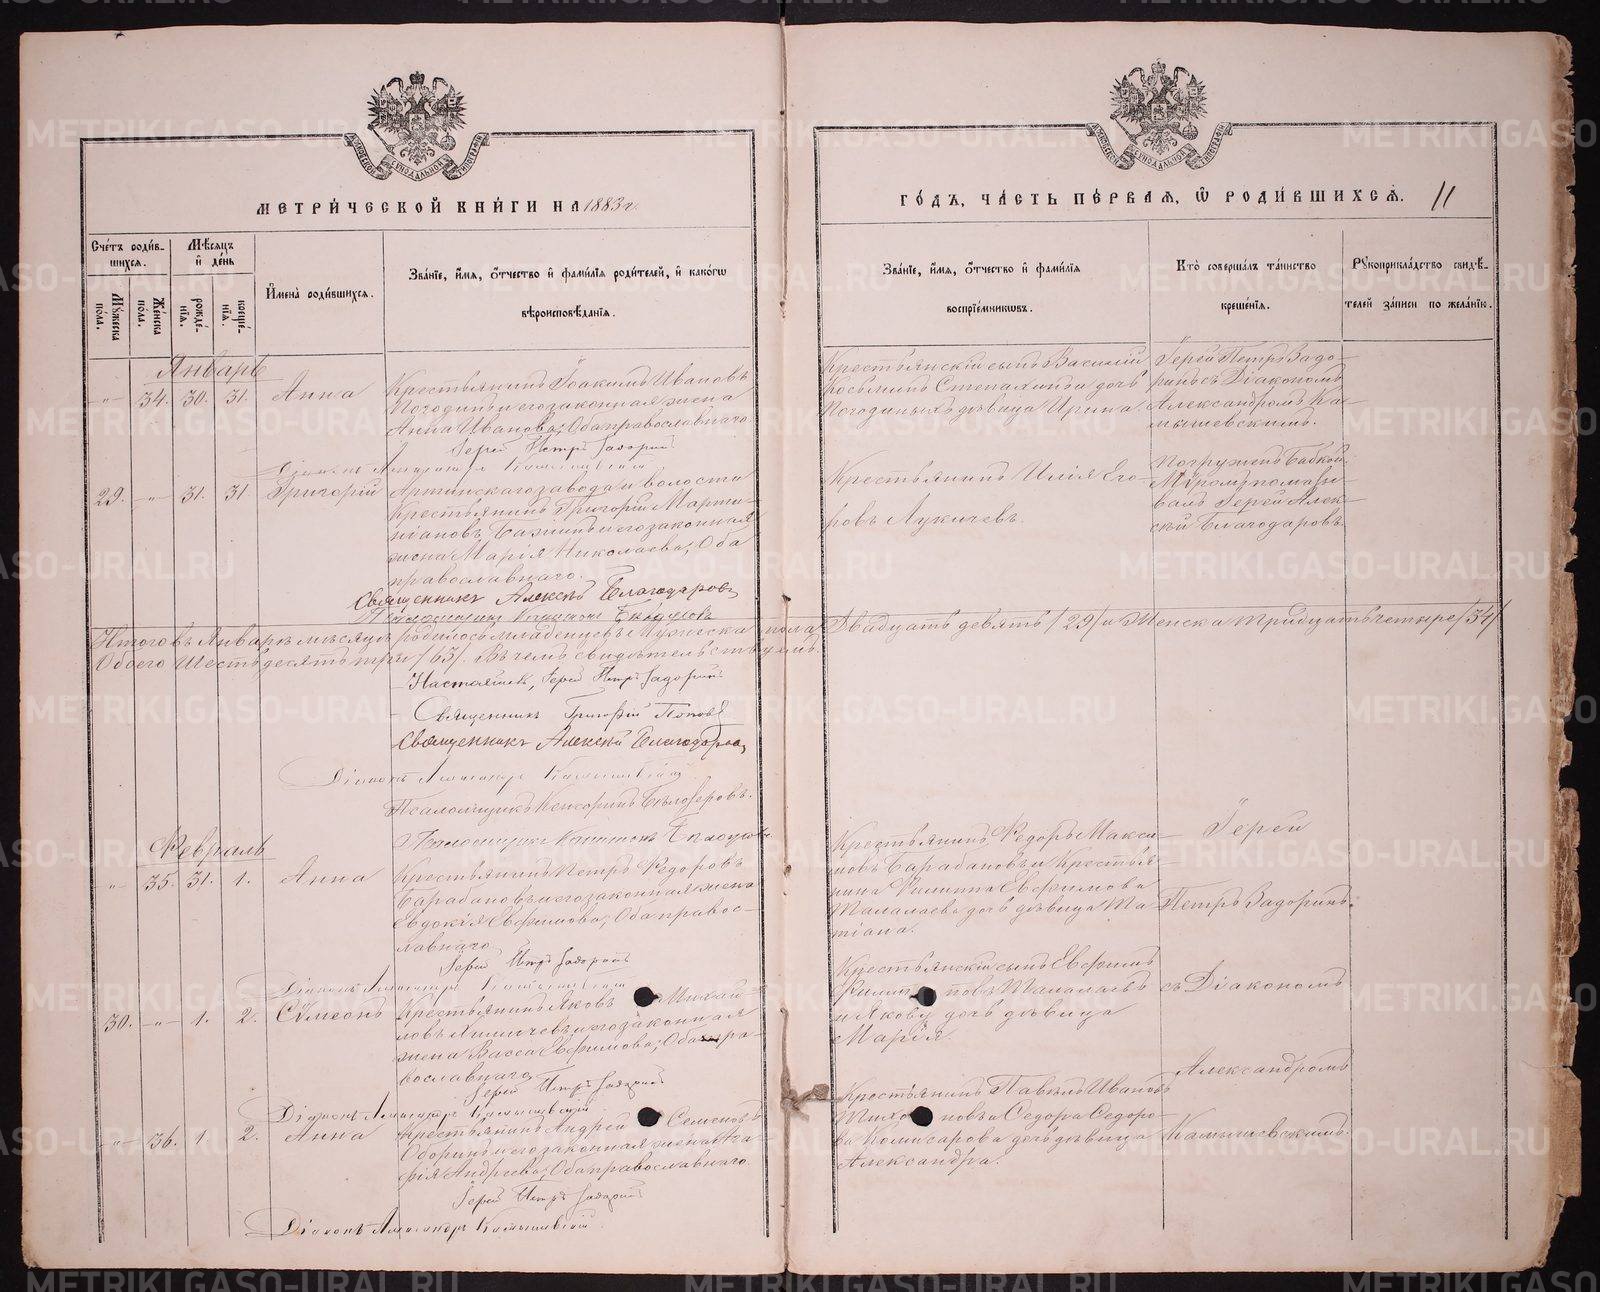 МЕТРИЧЕСКОЙ КНИГИ НА 1883 г.
Счетъ родив-
шихся.
Мѣсяцъ
и день
Имена родившихся.
Званіе, имя, отчество и фамилія родителей, и какого
вѣроисповѣданія.
Мужеска
пола.
Женска
пола.
рожде-
нія.
креще-
нія.
Январь
"
34.
30.
31.
Анна
Крестьянинъ Іоакимъ Ивановъ
Погодинъ и его законная жена
Анна Иванова; Оба православнаго.
Іерей Петръ Задоринъ
Діаконъ Александръ Камышевскій
29.
"
31.
31
Григорій
Артинскаго завода и волости
Крестьянинъ Григорій Марти-
ніановъ и его законная
жена Марія Николаева; Оба
православнаго.
Священникъ Алексѣй Благодаровъ
Итого въ Январѣ мѣсяцѣ родилось младенцевъ Мужеска пола
Обоего Шестьдесятъ три /63/. Въ чемъ свидѣтельствуемъ.
Іерей Петръ Задоринъ
Священникъ Григорій Поповъ
Священникъ Алексѣй Благодаровъ
Діаконъ Александръ Камышевскій
Псаломщикъ Бѣлозеровъ.
Февраль
"
35.
31.
1.
Анна
Крестьянинъ Петръ Ѳедоровъ
Барабановъ и его законная жена
Евдокія Евфимова; Оба правос-
лавнаго.
Іерей Петръ Задоринъ
Діаконъ Александръ Камышевскій
30.
"
1.
2.
Сѵмеонъ
Крестьянинъ Яковъ Михай-
ловъ и его законная
жена Васса Евфимова; Оба пра-
вославнаго.
Іерей Петръ Задоринъ
Діаконъ Александръ Камышевскій
"
36.
1.
2.
Анна
Крестьянинъ Андрей Семеновъ
и его законная жена Ма-
рія Андреева; Оба православнаго.
Іерей Петръ Задоринъ
Діаконъ Александръ Камышевскій
ГОДЪ, ЧАСТЬ ПЕРВАЯ, Ѿ РОДИВШИХСЯ.
11
Званіе, имя, отчество и фамилія
воспріемниковъ.
Кто совершалъ таинство
крещенія.
Рукоприкладство свидѣ-
телей записи по желанію.
Крестьянскій сынъ Василій
Косьминъ Степахинъ и дочь
Погодиныхъ дѣвица Ирина
Іерей Петръ Задо-
ринъ съ Діакономъ
Александромъ Ка-
мышевскимъ.
Крестьянинъ Илія Его-
ровъ Лукичевъ.
Погруженъ бабкой
Мѵромъ помазы-
валъ Іерей Алек-
сѣй Благодаровъ.
Двадцать девять /29/ и Женска тридцать четыре /34/
Крестьянинъ Ѳедоръ Макси-
мовъ Барабановъ и Крестья-
нина Филиппа Евфимова
Талалаева дочь дѣвица Та-
тіана.
Іерей
Петръ Задоринъ
Крестьянскій сынъ Евфимъ
Филипповъ Талалаевъ
и Якову дочь дѣвица
Марія.
съ Діакономъ
Александромъ
Крестьянинъ Павелъ Ивановъ
и Ѳедора Ѳедоро-
ва Комисарова дочь дѣвица
Александра.
Камышевскимъ.
METRIKI.GASO-URAL.RU